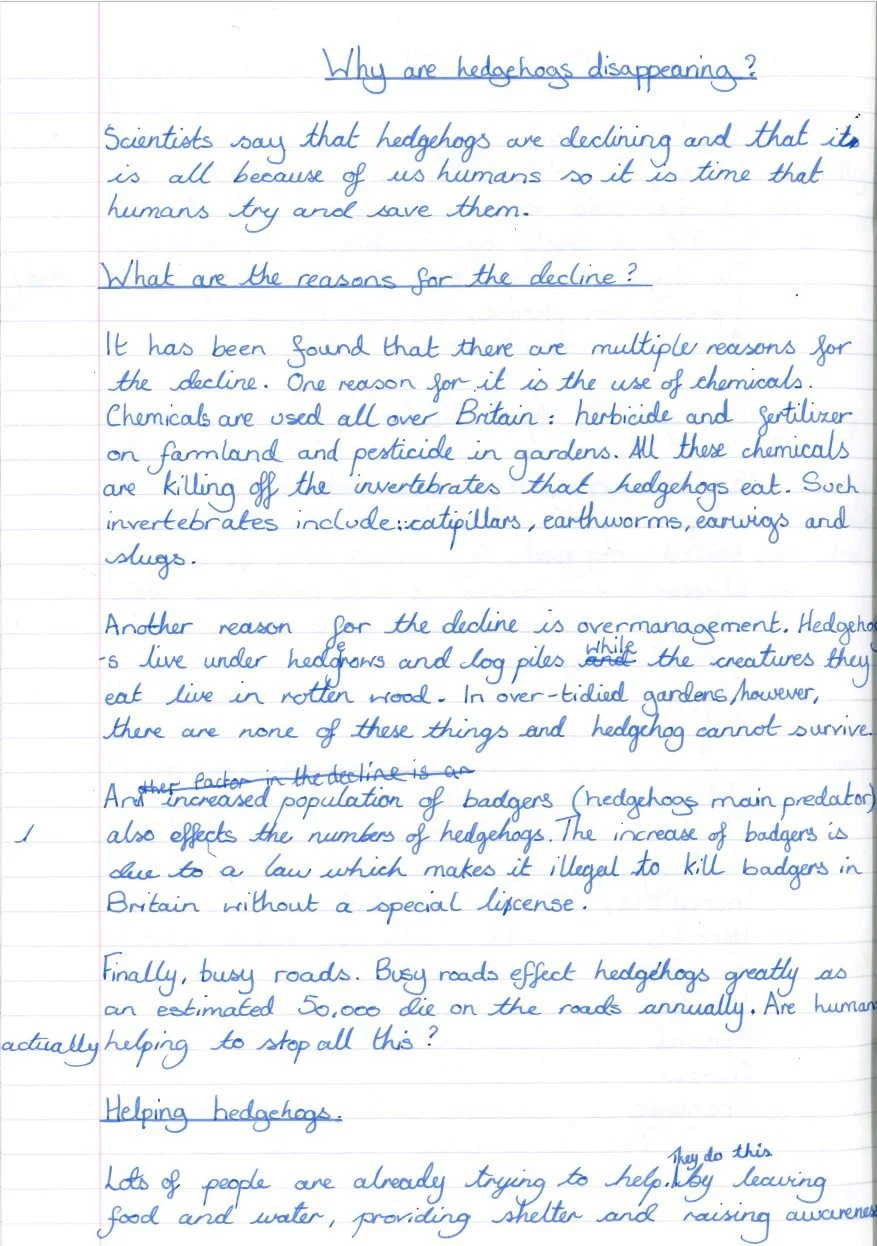 Why are hedgehogs disappearing?
Scientists say that hedgehogs are declining and that it
is all because of us humans so it is time that
humans try and save them.
What are the reasons for the decline?
It has been found that there are multiple reasons for
the decline. One reason for it is the use of chemicals.
Chemicals are used all over Britain: herbicide and fertilizer
on farmland and pesticide in gardens. All these chemicals
are killing off the invertebrates that hedgehogs eat. Such
invertebrates include: catipillars, earthworms, earwigs and
slugs.
Another reason for the decline is overmanagement. Hedgehog
-s live under hedgerows and log piles while the creatures they
eat live in rotten wood. In over-tidied gardens, however,
there are none of these things and hedgehog cannot survive.
ther factor in the decline is an
An increased population of badgers (hedgehogs main predator)
also effects the numbers of hedgehogs. The increase of badgers is
due to a law which makes it illegal to kill badgers in
Britain without a special license.
Finally, busy roads. Busy roads effect hedgehogs greatly as
an estimated 50,000 die on the roads annually. Are human
actually helping to stop all this?
Helping hedgehogs.
Lots of people are already trying to help. They do this by leaving
food and water, providing shelter and raising awarenes